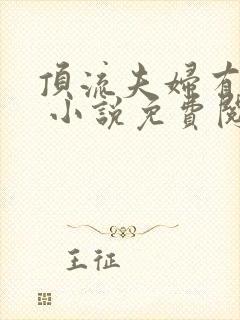 頂流夫婦有
小說免費閱
王征